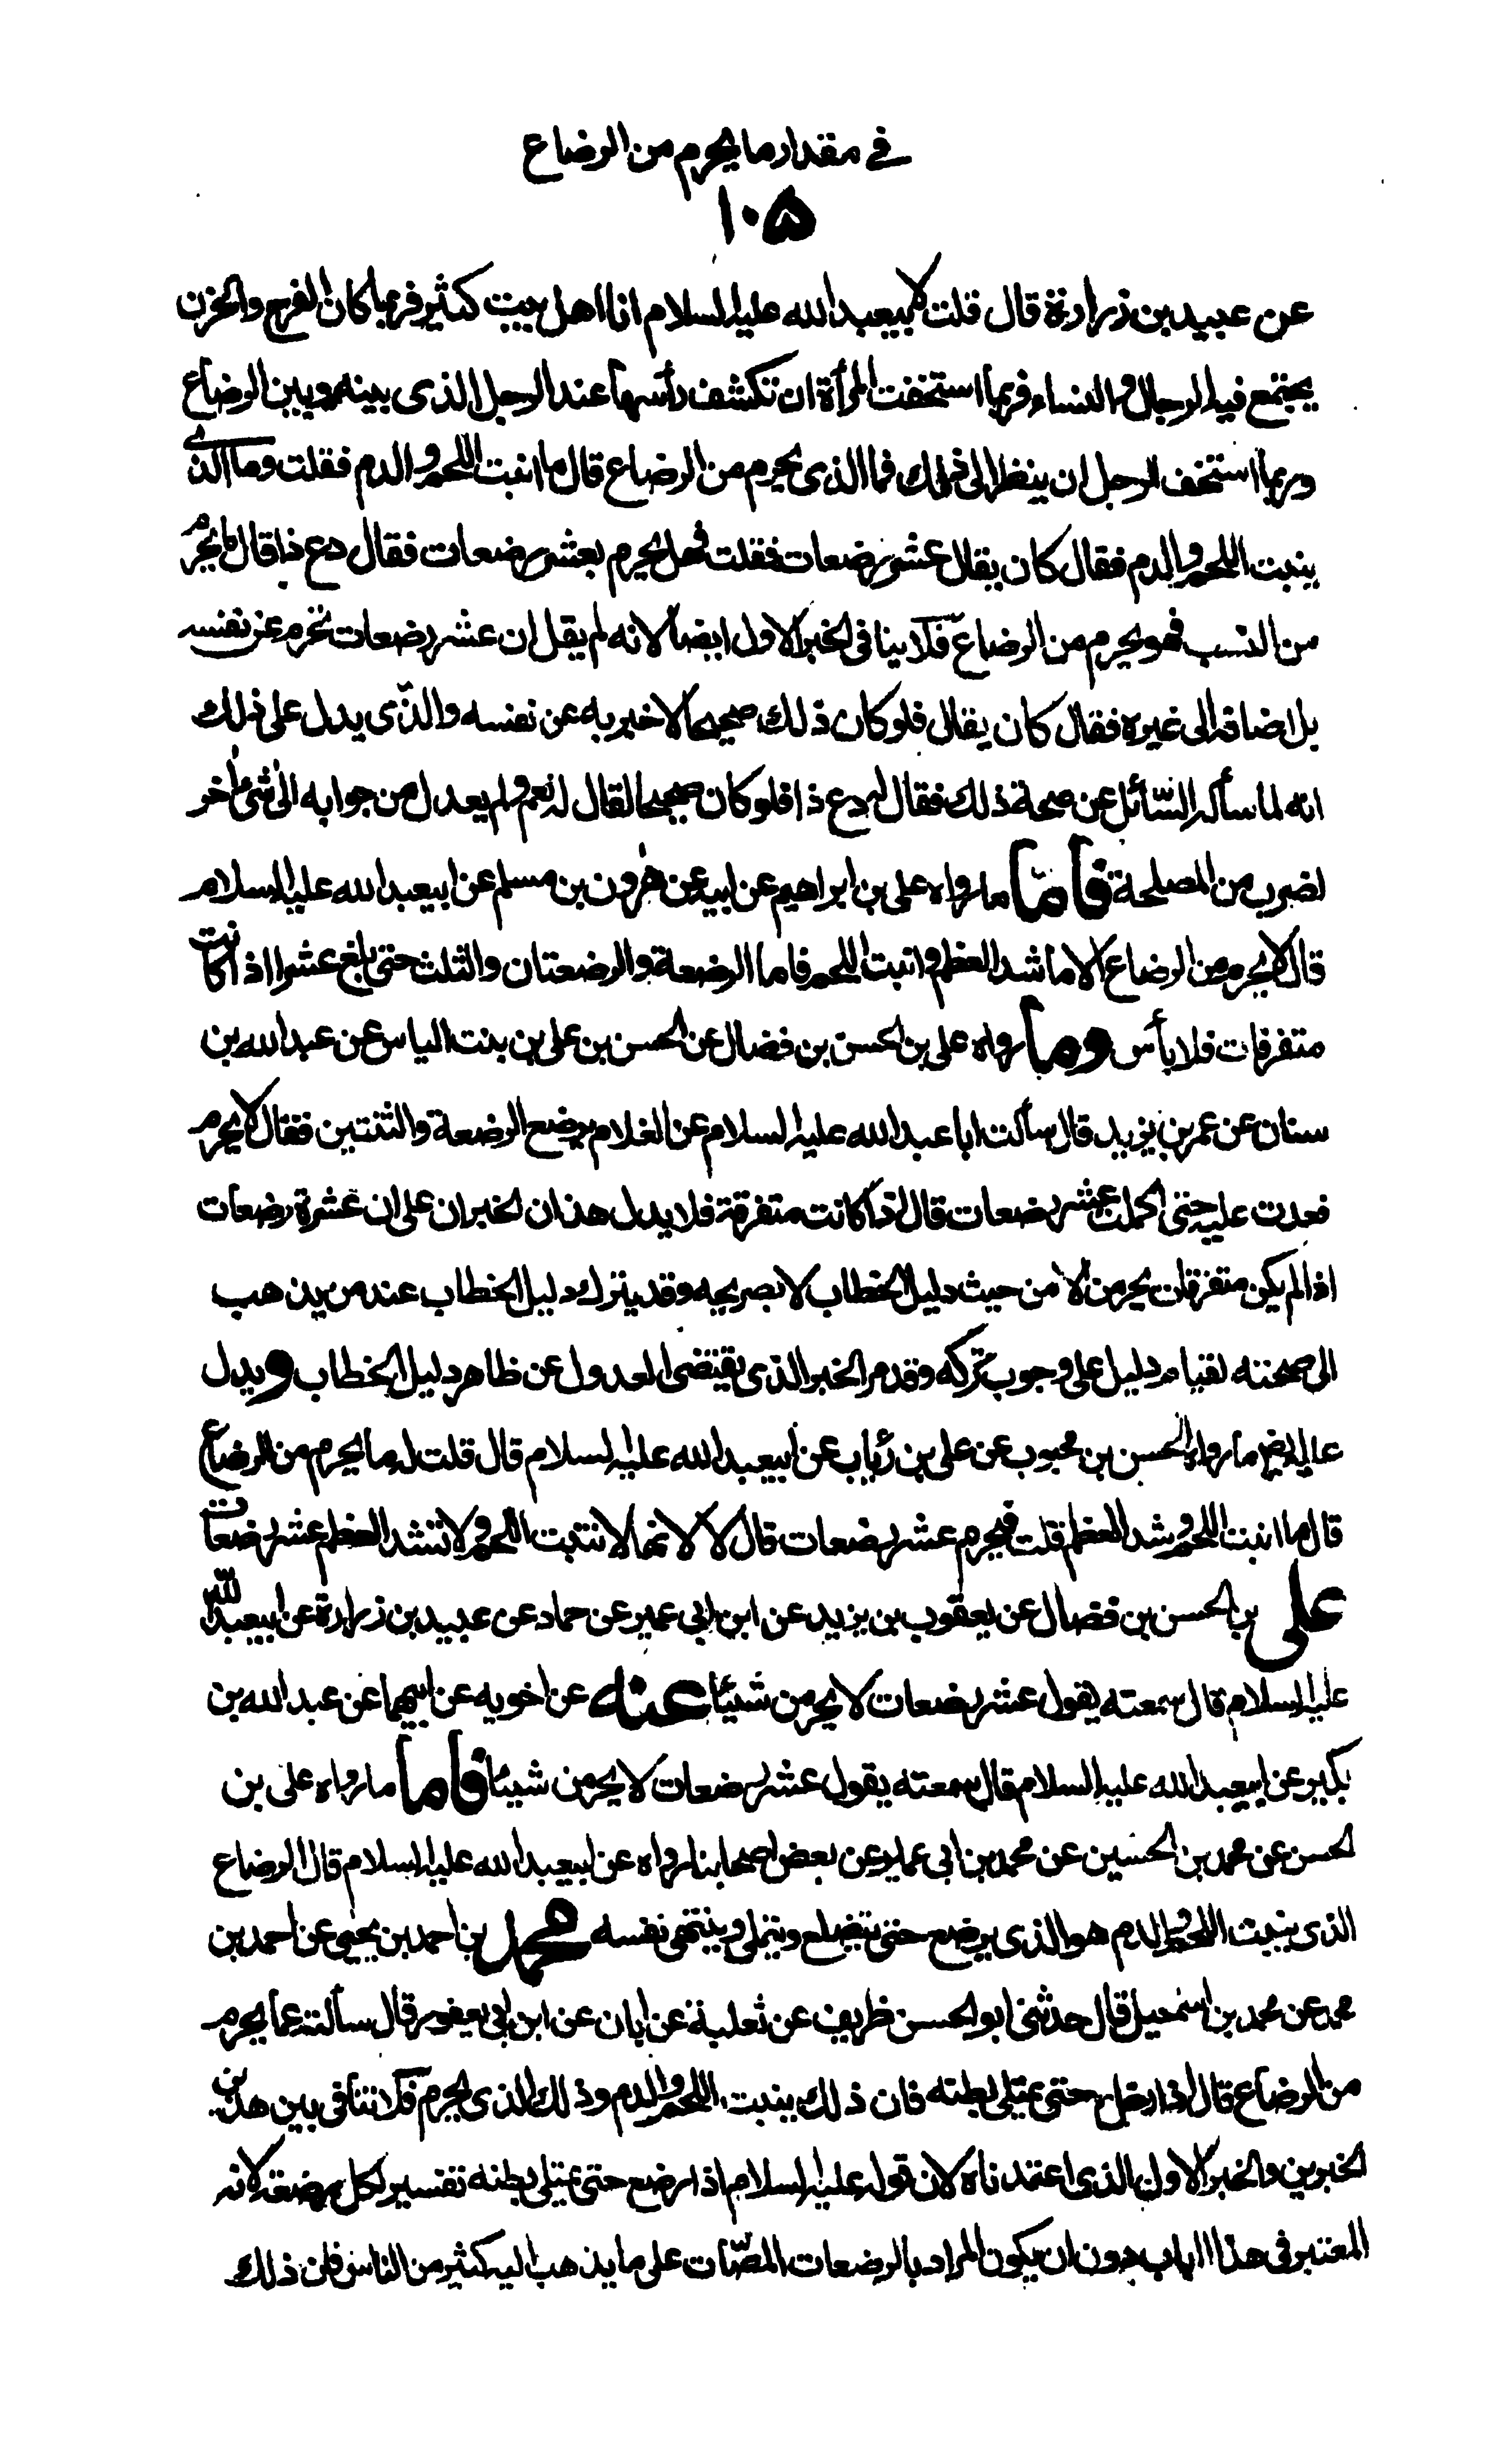 في مقدار ما يحرم من الرضاع
١٠۵
عن عبيد بن زرارة قال قلت لابيعبد الله عليه السلام انا اهل بيت كثير فربما كان الفرح والحزن
يجتمع فيه الرجال والنساء فربما استخفت المرأة ان تكشف رأسها عند الرجل الذى بينه وبين الرضاع
وربما استخف الرجل ان ينظر الى ذلك فما الذى يحرم من الرضاع قال ما انبت اللحم والدم فقلت وما الذى
ينبت اللحم والدم فقال كان يقال عشر رضعات فقلت فهل يحرم بعشر رضعات فقال دع ذا قال ما يحرم
من النسب فهو يحرم من الرضاع فلا ينافى الخبر الاول ايضا لانه لم يقل ان عشر رضعات تحرم عن نفسه
بل اضافه الى غيره فقال كان يقال فلو كان ذلك صحيحا لاخبر به عن نفسه والذى يدل على ذلك
انه لما سأله السّائل عن صحة ذلك فقال له دع ذا فلو كان صحيحا لقال له نعم ولم يعدل من جوابه الى شئ اخر
لضرب من المصلحة فامّا ما رواه على بن ابراهيم عن ابيه عن هرون بن مسلم عن ابيعبد الله عليه السلام
قال لا يحرم من الرضاع الا ما شد العظم وانبت اللحم فاما الرضعة والرضعتان والثلث حتى بلغ عشرا اذا كانت
متفرقات فلا بأس وما رواه على بن الحسن بن فضال عن الحسن بن على بن بنت الياس عن عبد الله بن
سنان عن عمر بن يزيد قال سألت ابا عبد الله عليه السلام عن الغلام يرضع الرضعة والثنتين فقال لا يحرم
فعدت عليه حتى اكملت عشر رضعات قال اذا كانت متفرقة فلا يدل هذان الخبران على ان عشرة رضعات
اذا لم يكن متفرقات يحرمن الا من حيث دليل الخطاب لا بصريحه وقد يترك دليل الخطاب عند من يذهب
الى صحته لقيام دليل على وجوب تركه وقدم الخبر الذى يقتضى العدول عن ظاهر دليل الخطاب ويدل
عليه ايضا ما رواه الحسن بن محبوب عن على بن رئاب عن ابيعبد الله عليه السلام قال قلت له ما يحرم من الرضاع
قال ما انبت اللحم وشد العظم قلت فيحرم عشر رضعات قال لا لانها لا تنبت اللحم ولا تشد العظم عشر رضعات
على بن الحسن بن فضال عن يعقوب بن يزيد عن ابن ابى عمير عن حماد عن عبيد بن زرارة عن ابيعبد الله
عليه السلام قال سمعته يقول عشر رضعات لا يحرمن شيئا عنه عن اخويه عن ابيهما عن عبد الله بن
بكير عن ابيعبد الله عليه السلام قال سمعته يقول عشر رضعات لا يحرمن شيئا فاما ما رواه على بن
الحسن عن محمد بن الحسين عن محمد بن ابى عمير عن بعض اصحابنا رواه عن ابيعبد الله عليه السلام قال الرضاع
الذى ينبت اللحم والدم هو الذى يرضع حتى يتضلع ويتملى وينتهى نفسه محمد بن احمد بن يحيى عن احمد بن
محمد عن محمد بن اسمعيل قال حدثنى ابو الحسن ظريف عن ثعلبة عن ابان عن ابن ابى يعفور قال سألته عما يحرم
من الرضاع قال اذا رضع حتى يمتلى بطنه فان ذلك ينبت اللحم والدم وذلك الذى يحرم فلا تنافى بين هذين
الخبرين والخبر الاول الذى اعتمدناه لان قوله عليه السلام اذا رضع حتى يمتلى بطنه تفسير لكل رضعة لانه
المعتبر فى هذا الباب دون ان يكون المراد بالرضعات المصّات على ما يذهب اليه كثير من الناس فان ذلك